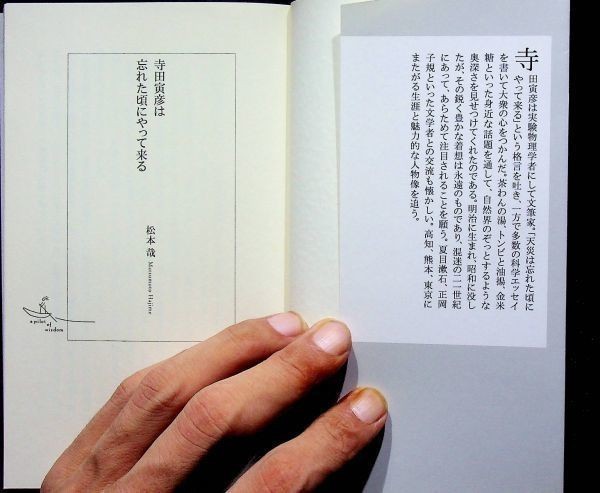 寺田寅彦は実験物理学者にして文筆家。「天災は忘れた頃に
やって来る」という格言を吐き、一方で多数の科学エッセイ
を書いて大衆の心をつかんだ。茶わんの湯、トンビと油揚、金米
糖といった身近な話題を通して、自然界のぞっとするような
奥深さを見せつけてくれたのである。明治に生まれ、昭和に没し
たが、その鋭く豊かな着想は永遠のものであり、混迷の二一世紀
にあって、あらためて注目されることを願う。夏目漱石、正岡
子規といった文学者との交流も懐かしい。高知、熊本、東京に
またがる生涯と魅力的な人物像を追う。
寺田寅彦は
忘れた頃にやって来る
松本哉 Matsumoto Hajime
a pilot of
wisdom